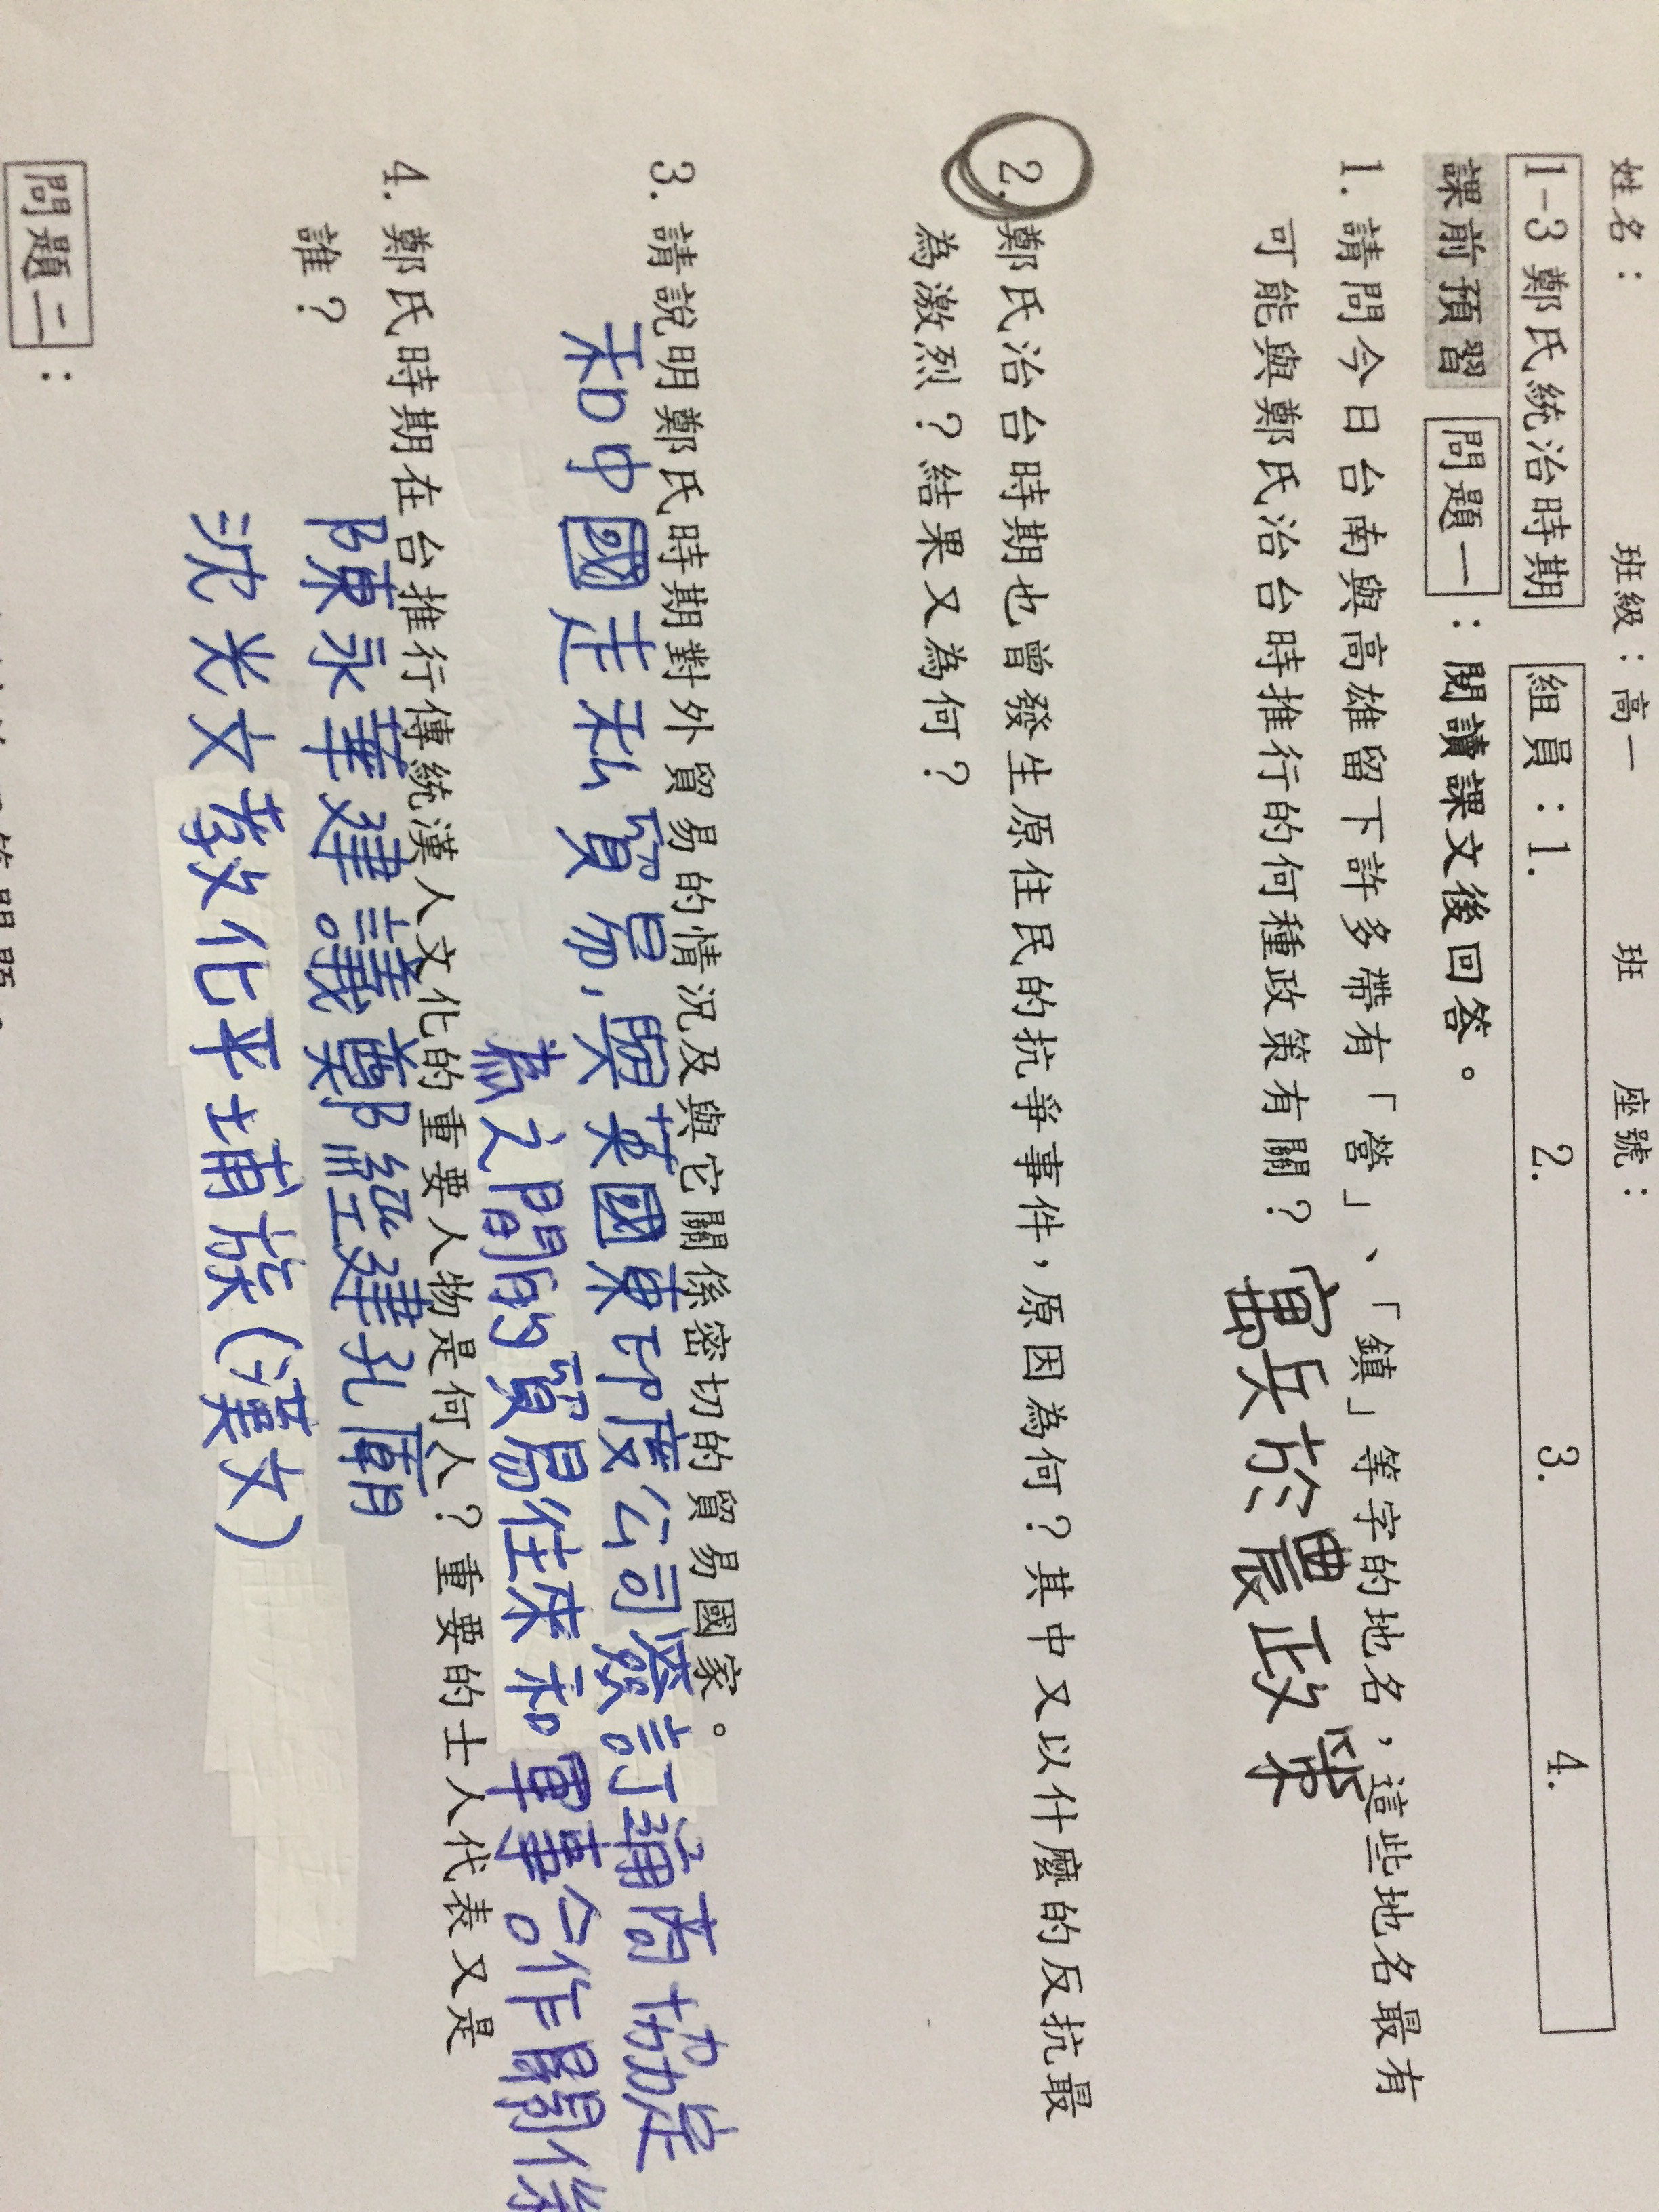 姓名： 班級：高一 班 座號：
1-3 鄭氏統治時期 組員：1. 2. 3. 4.
課前預習 問題一：閱讀課文後回答。
1. 請問今日台南與高雄留下許多帶有「營」、「鎮」等字的地名，這些地名最有
可能與鄭氏治台時推行的何種政策有關？寓兵於農政策
2. 鄭氏治台時期也曾發生原住民的抗爭事件，原因為何？其中又以什麼的反抗最
為激烈？結果又為何？
3. 請說明鄭氏時期對外貿易的情況及與它關係密切的貿易國家。
和中國走私貿易，與英國東印度公司簽訂通商協定
之間的貿易往來和軍事合作關係
4. 鄭氏時期在台推行傳統漢人文化的重要人物是何人？重要的士人代表又是
誰？
陳永華建議鄭經建孔廟
沈光文教化平埔族（漢文）
問題二：